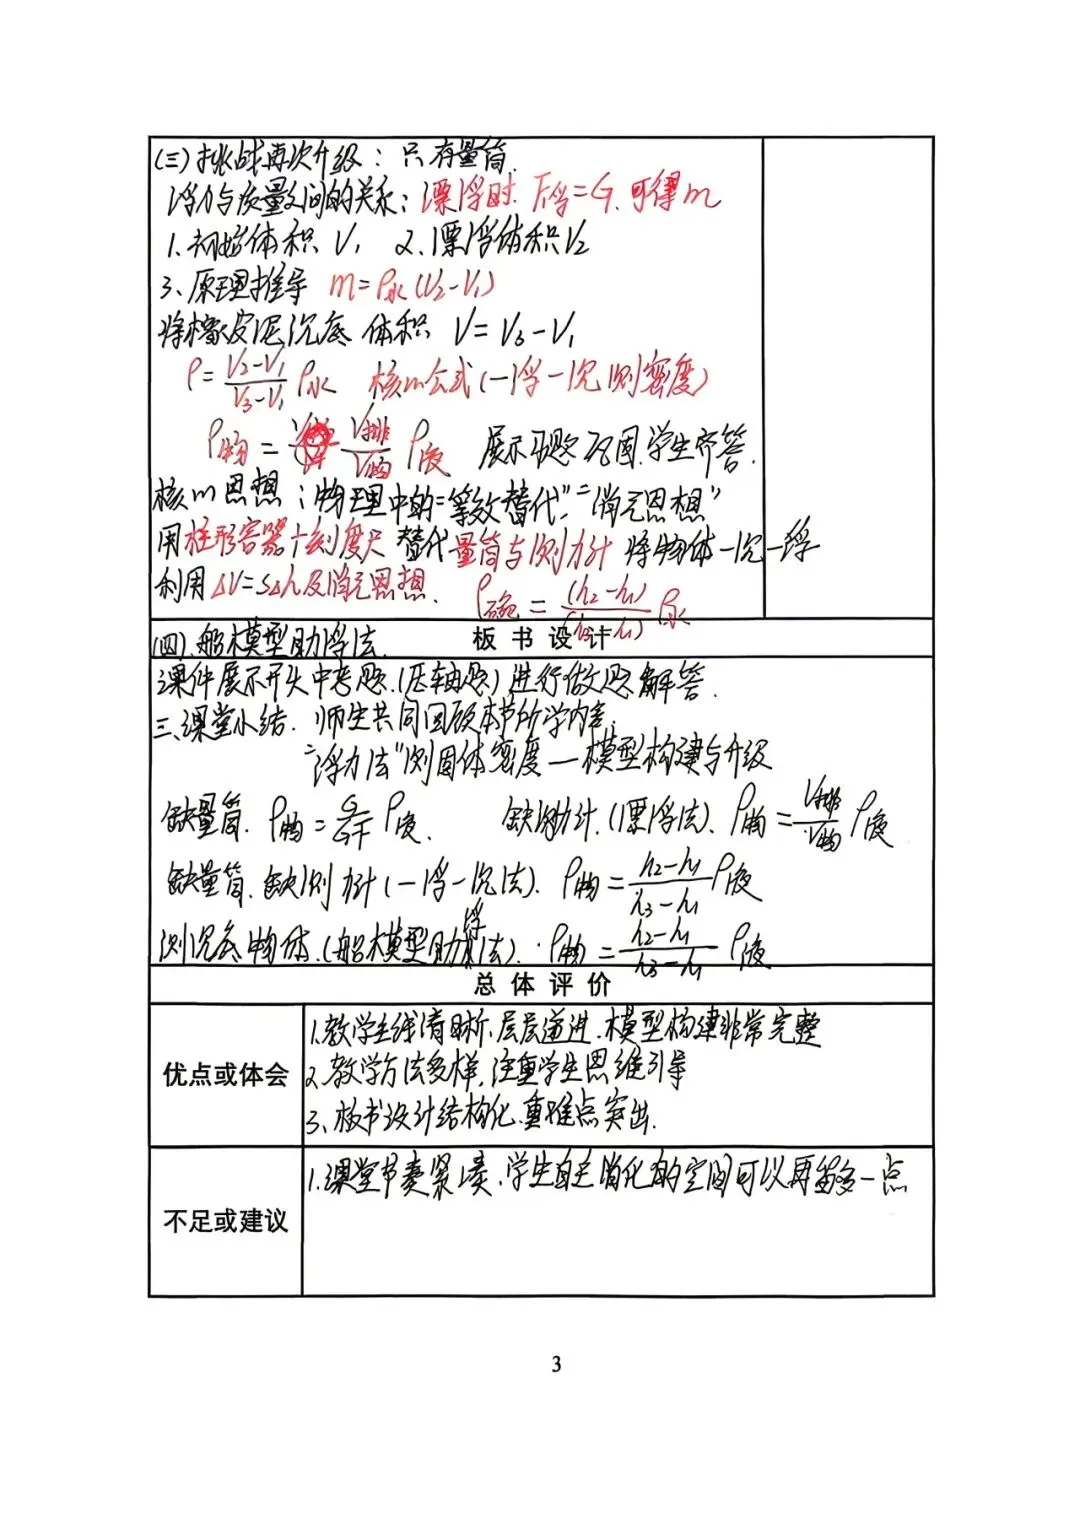 (三)挑战再次升级：只有量筒.
浮力与质量之间的关系：漂浮时. F浮=G. 可得m
1.初始体积 V₁ 2.漂浮体积V₂
3、原理推导 m=ρ水(V₂-V₁)
将橡皮泥沉底 体积 V=V₃-V₁
ρ=(V₂-V₁)/(V₃-V₁) ρ水 核心公式(一浮一沉测密度)
ρ物= V排/V物 ρ液 展示习题巩固.学生齐答.
核心思想：物理中的"等效替代""消元思想"
用柱形容器+刻度尺 替代量筒与测力计 将物体一沉一浮
利用ΔV=SΔh及消元思想. ρ碗=(h₂-h₁)/(h₃-h₁) ρ水
(四).船模型助浮法.
板书设计
课件展示开头中考题.(压轴题)进行做题解答.
三.课堂小结. 师生共同回顾本节所学内容.
"浮力法"测固体密度—模型构建与升级
缺量筒. ρ物=G/(G-F) ρ液. 缺测力计.(漂浮法). ρ物=V排/V物 ρ液
缺量筒.缺测力计(一浮一沉法). ρ物=(h₂-h₁)/(h₃-h₁) ρ液
测沉底物体.(船模型助浮法). ρ物=(h₂-h₁)/(h₃-h₁) ρ液
总体评价
优点或体会
1.教学主线清晰、层层递进.模型构建非常完整
2.教学方法多样,注重学生思维引导
3、板书设计结构化.重难点突出.
不足或建议
1.课堂节奏紧凑.学生自主消化的空间可以再多一点
3